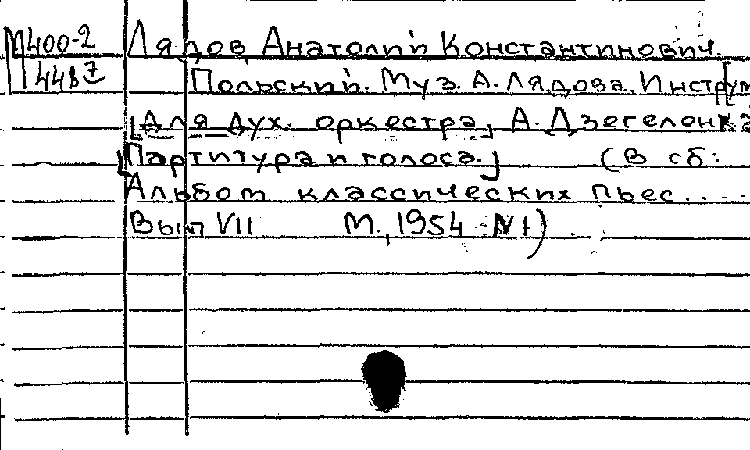 М400-2 Лядов, Анатолий Константинович.
448 Польский. Муз. А. Лядова. Инструм
[для дух. оркестра] А. Дзегеленка
[Партитура и голоса.] (В сб:
Альбом классических пьес...
Вып VII М., 1954 N1)